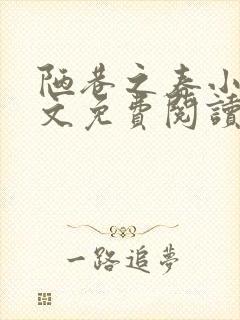 陋巷之春小
文免費閱讀
一路追夢